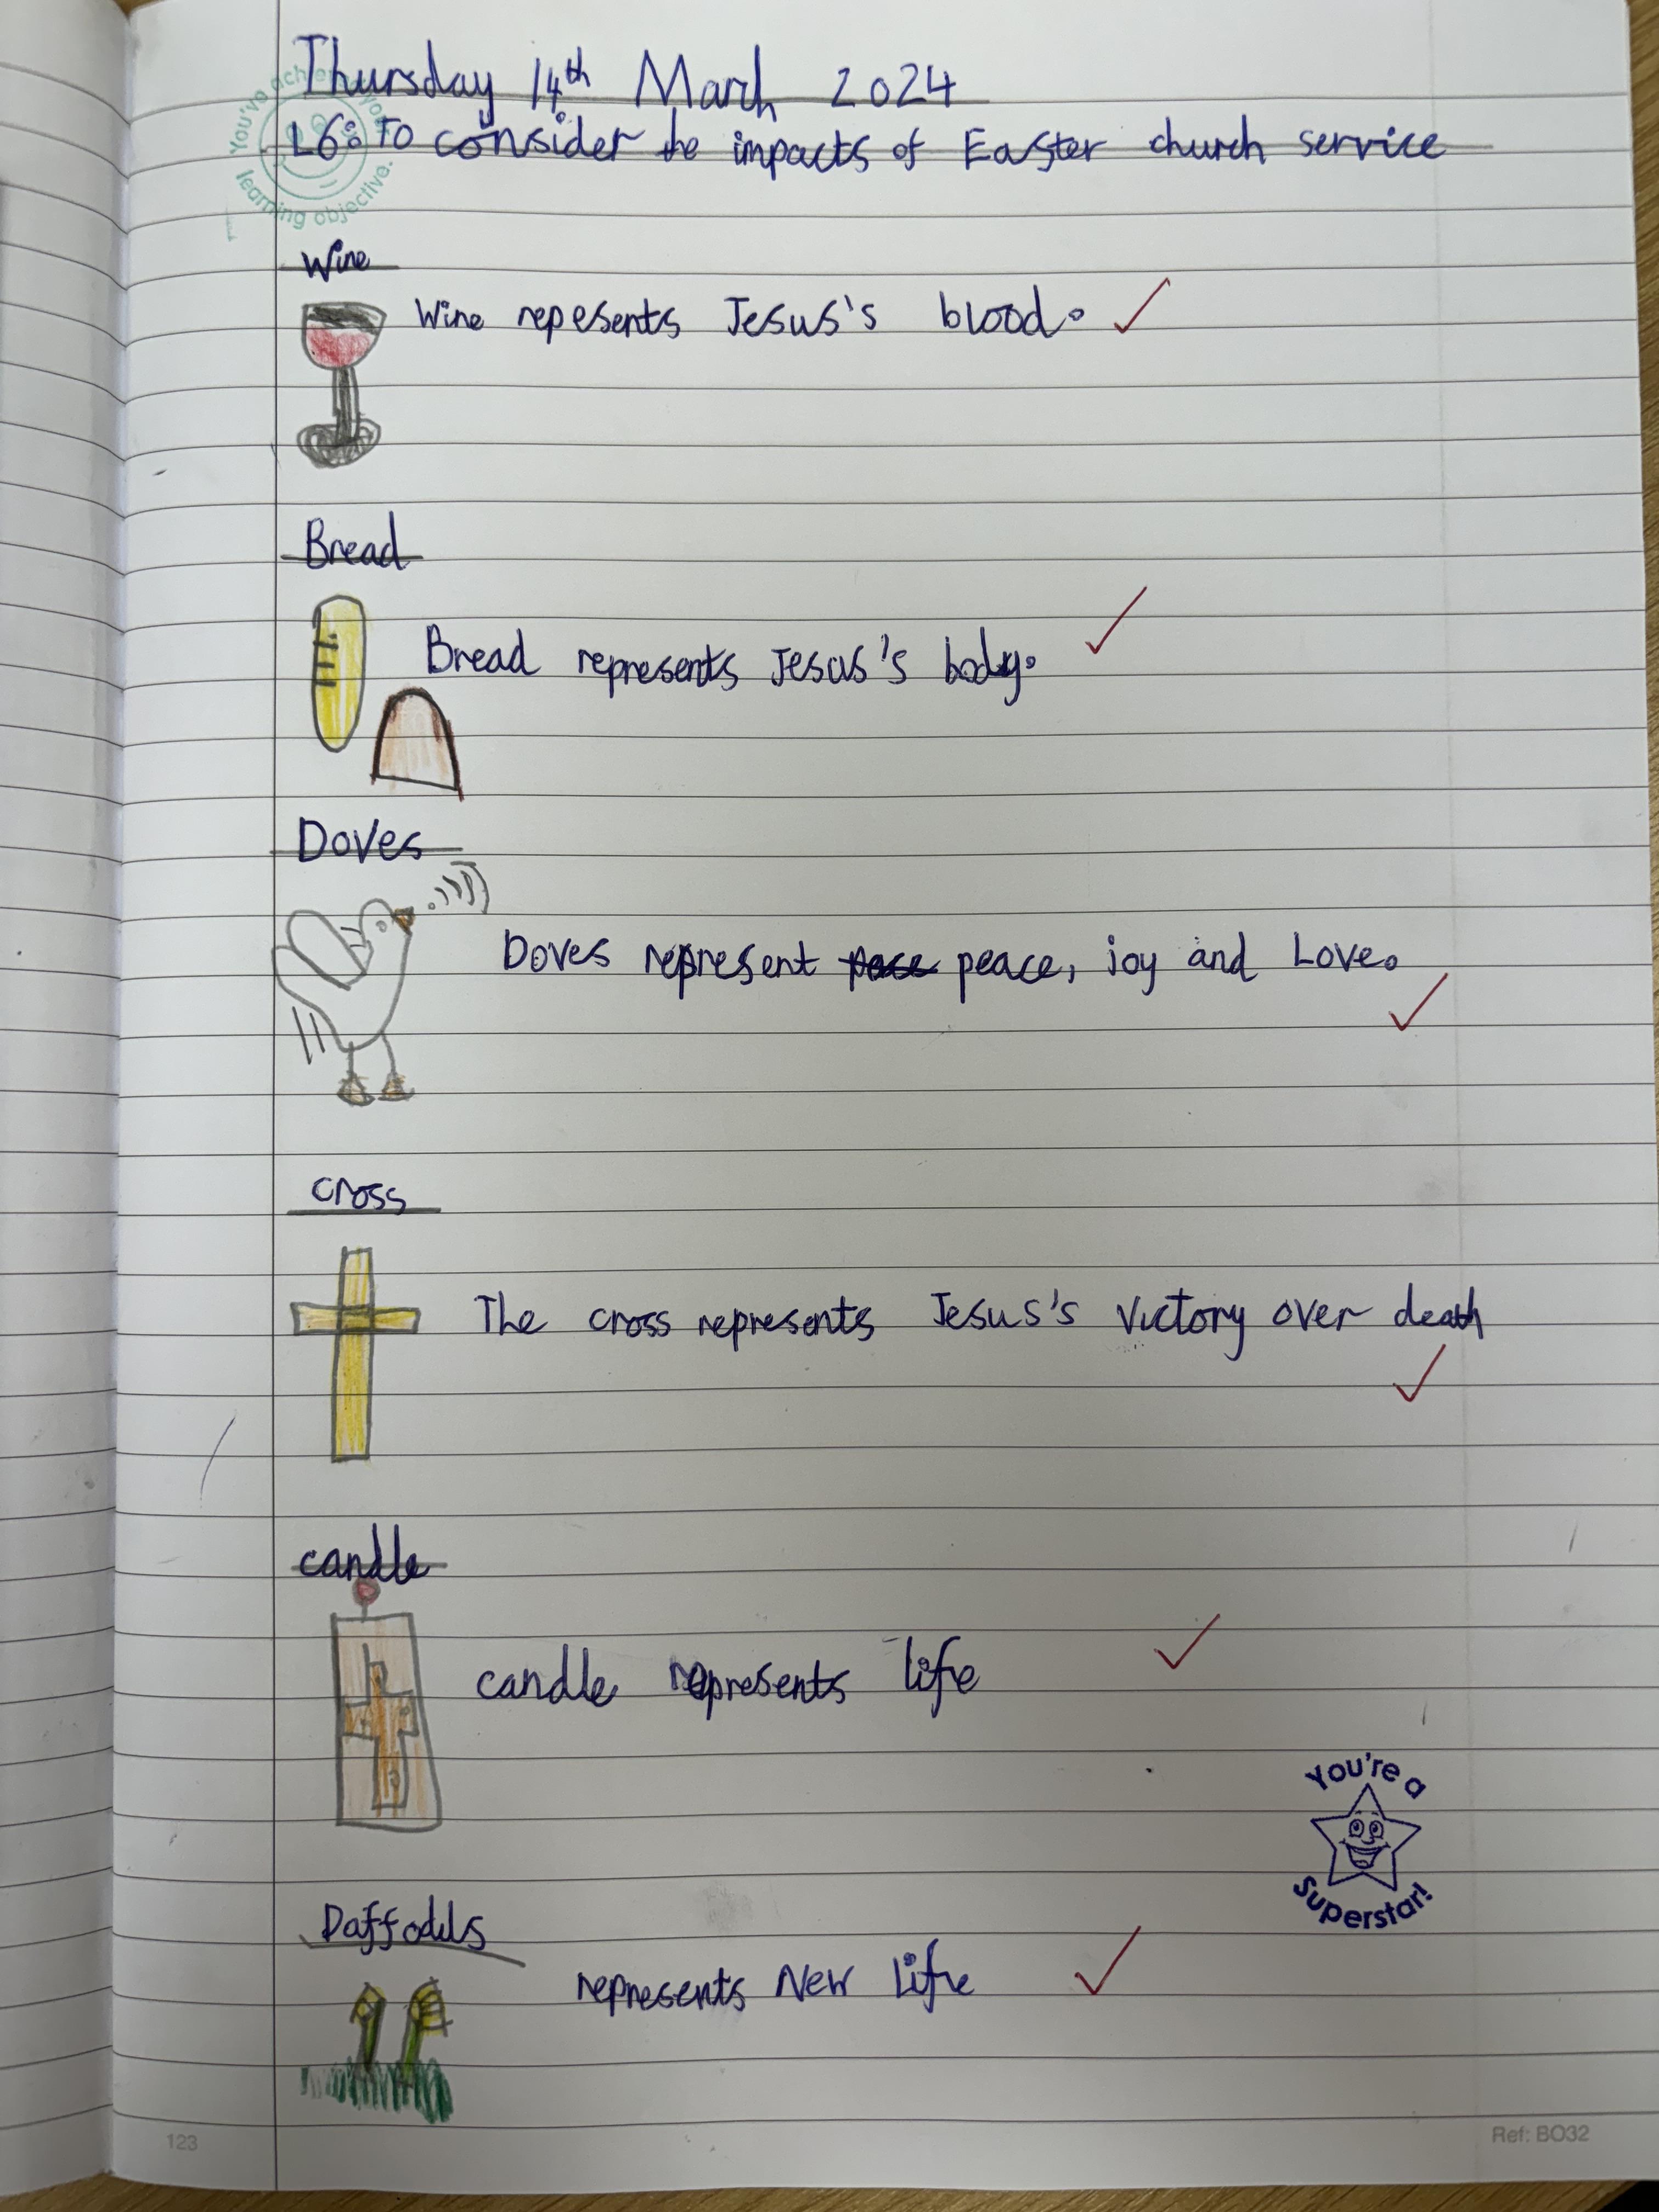 Thursday 14th March 2024
L6: To consider the impacts of Easter church service
You've achieved your
learning objective.
Wine
Wine repesents Jesus's blood.
Bread
Bread represents Jesus's body.
Doves
Doves represent peace, joy and Love.
Cross
The cross represents Jesus's Victory over death
candle
candle represents life
You're a
Superstar!
Daffodils
represents New Life
123
Ref: BO32